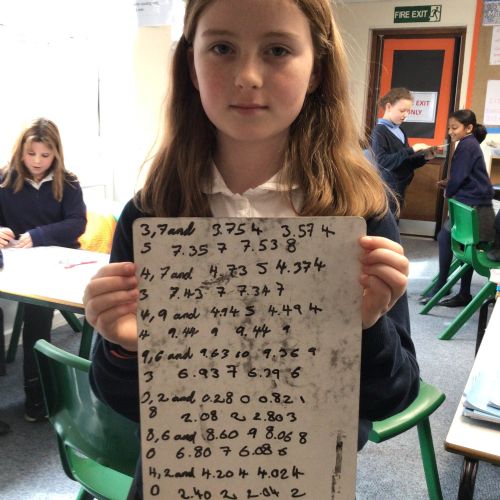 FIRE EXIT
EXIT
ONLY
3,7 and 3.75 4 3.57 4
5 7.35 7 7.53 8
4,7 and 4.73 5 4.37 4
3 7.43 7 7.34 7
4,9 and 4.94 5 4.49 4
4 9.44 9 9.44 9
9,6 and 9.63 10 9.36 9
3 6.93 7 6.39 6
0,2 and 0.28 0 0.82 1
8 2.08 2 2.80 3
8,6 and 8.60 9 8.06 8
0 6.80 7 6.08 6
4,2 and 4.20 4 4.02 4
0 2.40 2 2.04 2